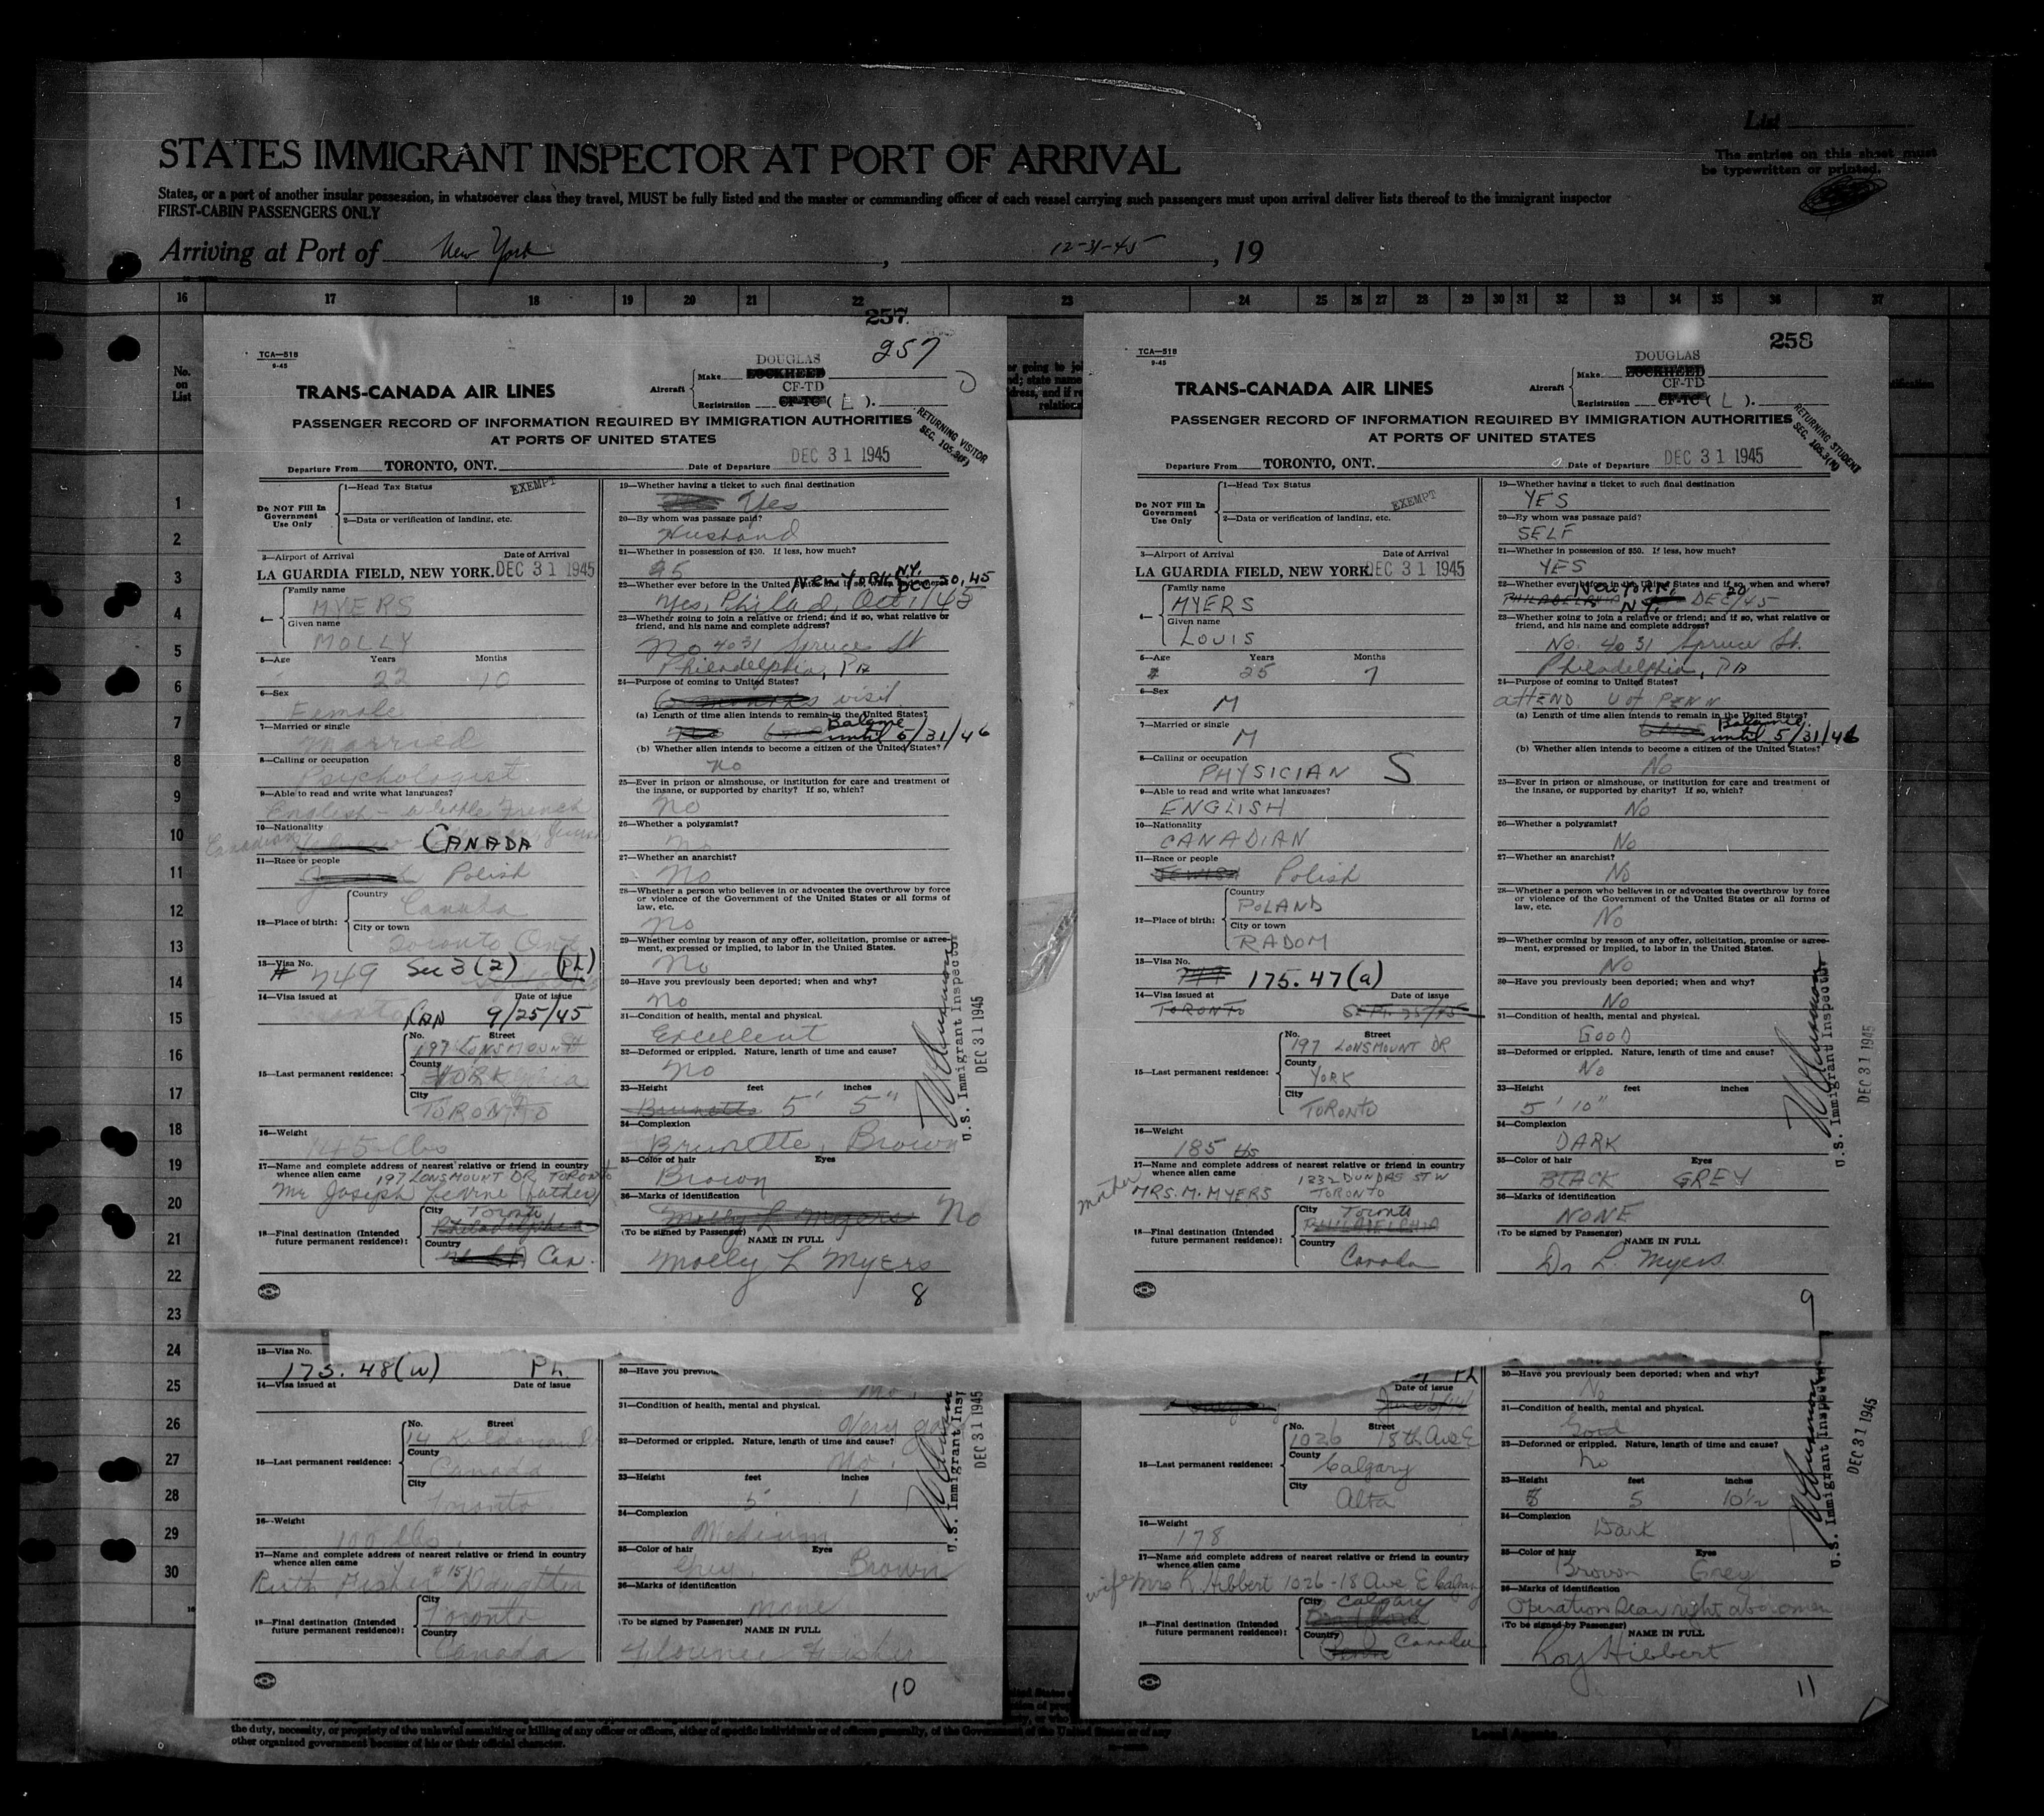 List
The entries on this sheet must
be typewritten or printed.
STATES IMMIGRANT INSPECTOR AT PORT OF ARRIVAL
States, or a port of another insular possession, in whatsoever class they travel, MUST be fully listed and the master or commanding officer of each vessel carrying such passengers must upon arrival deliver lists thereof to the immigrant inspector
FIRST-CABIN PASSENGERS ONLY
Arriving at Port of New York, 12-31-45, 19
16 17 18 19 20 21 22 23 24 25 26 27 28 29 30 31 32 33 34 35 36 37
No. on List
1
2
3
4
5
6
7
8
9
10
11
12
13
14
15
16
17
18
19
20
21
22
23
24
25
26
27
28
29
30
257
257
TCA—518
9-45
DOUGLAS
Aircraft Make LOCKHEED
CF-TD
Registration CF-TC (L).
TRANS-CANADA AIR LINES
PASSENGER RECORD OF INFORMATION REQUIRED BY IMMIGRATION AUTHORITIES
AT PORTS OF UNITED STATES
RETURNING VISITOR
SEC. 105.3(F)
Departure From TORONTO, ONT. Date of Departure DEC 31 1945
Do NOT Fill In Government Use Only
1—Head Tax Status EXEMPT
2—Data or verification of landing, etc.
3—Airport of Arrival Date of Arrival
LA GUARDIA FIELD, NEW YORK. DEC 31 1945
4— Family name
MYERS
Given name
MOLLY
5—Age Years Months
22 10
6—Sex
Female
7—Married or single
Married
8—Calling or occupation
Psychologist
9—Able to read and write what languages?
English - a little French
10—Nationality
Canadian CANADA
11—Race or people
Polish
12—Place of birth: Country
Canada
City or town
Toronto Ont
13—Visa No.
# 749 Sec 3 (2) (PL)
14—Visa issued at Date of issue
Toronto CAN 9/25/45
15—Last permanent residence: No. Street
197 LONSMOUNT
County
YORK
City
TORONTO
16—Weight
145 lbs
17—Name and complete address of nearest relative or friend in country whence alien came 197 LONSMOUNT DR TORONTO
Mr Joseph (father)
18—Final destination (Intended future permanent residence): City Toronto
Philadelphia
Country
Can.
19—Whether having a ticket to such final destination
Yes
20—By whom was passage paid?
Husband
21—Whether in possession of $50. If less, how much?
22—Whether ever before in the United States and if so, when and where?
NEW YORK, NY. DEC 20, 45
Yes, Philad, Oct 1/45
23—Whether going to join a relative or friend; and if so, what relative or friend, and his name and complete address?
No 4031 Spruce St
Philadelphia, PA
24—Purpose of coming to United States?
6 months visit
(a) Length of time alien intends to remain in the United States?
Balance until 5/31/46
(b) Whether alien intends to become a citizen of the United States?
No
25—Ever in prison or almshouse, or institution for care and treatment of the insane, or supported by charity? If so, which?
No
26—Whether a polygamist?
No
27—Whether an anarchist?
No
28—Whether a person who believes in or advocates the overthrow by force or violence of the Government of the United States or all forms of law, etc.
No
29—Whether coming by reason of any offer, solicitation, promise or agreement, expressed or implied, to labor in the United States.
No
30—Have you previously been deported; when and why?
No
31—Condition of health, mental and physical.
Excellent
32—Deformed or crippled. Nature, length of time and cause?
No
33—Height feet inches
Brunette 5' 5"
34—Complexion
Brunette, Brown
35—Color of hair Eyes
Brown
36—Marks of identification
Molly L Myers No
(To be signed by Passenger) NAME IN FULL
Molly L Myers
8
U.S. Immigrant Inspector
DEC 31 1945
258
TCA—518
9-45
DOUGLAS
Aircraft Make LOCKHEED
CF-TD
Registration CF-TC (L).
TRANS-CANADA AIR LINES
PASSENGER RECORD OF INFORMATION REQUIRED BY IMMIGRATION AUTHORITIES
AT PORTS OF UNITED STATES
RETURNING STUDENT
Departure From TORONTO, ONT. Date of Departure DEC 31 1945
Do NOT Fill In Government Use Only
1—Head Tax Status EXEMPT
2—Data or verification of landing, etc.
3—Airport of Arrival Date of Arrival
LA GUARDIA FIELD, NEW YORK. DEC 31 1945
4— Family name
MYERS
Given name
LOUIS
5—Age Years Months
25 7
6—Sex
M
7—Married or single
M
8—Calling or occupation
PHYSICIAN S
9—Able to read and write what languages?
ENGLISH
10—Nationality
CANADIAN
11—Race or people
JEWISH Polish
12—Place of birth: Country
POLAND
City or town
RADOM
13—Visa No.
749 175.47(a)
14—Visa issued at Date of issue
TORONTO SEPT. 25/45
15—Last permanent residence: No. Street
197 LONSMOUNT DR
County
YORK
City
TORONTO
16—Weight
185 lbs
17—Name and complete address of nearest relative or friend in country whence alien came 1232 DUNDAS ST W
mother MRS. M. MYERS TORONTO
18—Final destination (Intended future permanent residence): City Toronto
PHILADELPHIA
Country
Canada
19—Whether having a ticket to such final destination
YES
20—By whom was passage paid?
SELF
21—Whether in possession of $50. If less, how much?
YES
22—Whether ever before in the United States and if so, when and where?
New YORK, N.Y. 20
PHILADELPHIA DEC/45
23—Whether going to join a relative or friend; and if so, what relative or friend, and his name and complete address?
No. 4031 Spruce St.
Philadelphia, PA
24—Purpose of coming to United States?
attEND U of PENN
(a) Length of time alien intends to remain in the United States?
Balance until 5/31/46
(b) Whether alien intends to become a citizen of the United States?
No
25—Ever in prison or almshouse, or institution for care and treatment of the insane, or supported by charity? If so, which?
No
26—Whether a polygamist?
No
27—Whether an anarchist?
No
28—Whether a person who believes in or advocates the overthrow by force or violence of the Government of the United States or all forms of law, etc.
No
29—Whether coming by reason of any offer, solicitation, promise or agreement, expressed or implied, to labor in the United States.
No
30—Have you previously been deported; when and why?
No
31—Condition of health, mental and physical.
GOOD
32—Deformed or crippled. Nature, length of time and cause?
No
33—Height feet inches
5' 10"
34—Complexion
DARK
35—Color of hair Eyes
BLACK GREY
36—Marks of identification
NONE
(To be signed by Passenger) NAME IN FULL
Dr L. Myers
9
U.S. Immigrant Inspector
DEC 31 1945
13—Visa No.
175.48(w) Ph.
14—Visa issued at Date of issue
15—Last permanent residence: No. Street
14
County
Canada
City
Toronto
16—Weight
100 lbs.
17—Name and complete address of nearest relative or friend in country whence alien came
Ruth Fisher #15
18—Final destination (Intended future permanent residence): City
Toronto
Country
Canada
30—Have you previou
No.
31—Condition of health, mental and physical.
Very good
32—Deformed or crippled. Nature, length of time and cause?
No.
33—Height feet inches
5 1
34—Complexion
Medium
35—Color of hair Eyes
Grey. Brown
36—Marks of identification
None
(To be signed by Passenger) NAME IN FULL
Florence Fisher
10
U.S. Immigrant Insp
DEC 31 1945
Date of issue
15—Last permanent residence: No. Street
1026 18th Ave E
County
Calgary
City
Alta
16—Weight
178
17—Name and complete address of nearest relative or friend in country whence alien came
wife Mrs R Hibbert 1026-18 Ave E Calgary
18—Final destination (Intended future permanent residence): City Calgary
Country
Canada
30—Have you previously been deported; when and why?
No
31—Condition of health, mental and physical.
Good
32—Deformed or crippled. Nature, length of time and cause?
No
33—Height feet inches
5 10½
34—Complexion
Dark
35—Color of hair Eyes
Brown Grey
36—Marks of identification
Operation Scar right abdomen
(To be signed by Passenger) NAME IN FULL
Roy Hibbert
11
U.S. Immigrant Inspector
DEC 31 1945
the duty, necessity, or propriety of the unlawful assaulting or killing of any officer or officers, either of specific individuals or of officers generally, of the Government of the United States or of any
other organized government because of his or their official character.
Local Agents